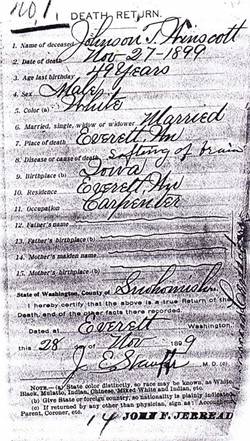 No 1.
DEATH RETURN.
1. Name of deceased Johnson T. Winscott
2. Date of death Nov-27-1899
3. Age last birthday 49 Years
4. Sex Male
5. Color (a) White
6. Married, single, widow or widower Married
7. Place of death Everett Wn
8. Disease or cause of death Softing of brain
9. Birthplace (b) Iowa
10. Residence Everett Wn
11. Occupation Carpenter
12. Father's name
13. Father's birthplace (b)
14. Mother's maiden name
15. Mother's birthplace (b)
State of Washington, County of Snohomish
I hereby certify that the above is a true Return of the
Death, and of the other facts there recorded.
Dated at Everett Washington,
this 28 of Nov 1899
J. E. M.D. (c)
NOTE.—(a) State color distinctly, so race may be known, as White,
Black, Mulatto, Indian, Chinese, Mixed White and Indian, etc.
(b) Give State or foreign country, so nationality is plain.
(c) If returned by any other than physician, sign as
Parent, Coroner, etc.
14 JOHN F. JERREAD